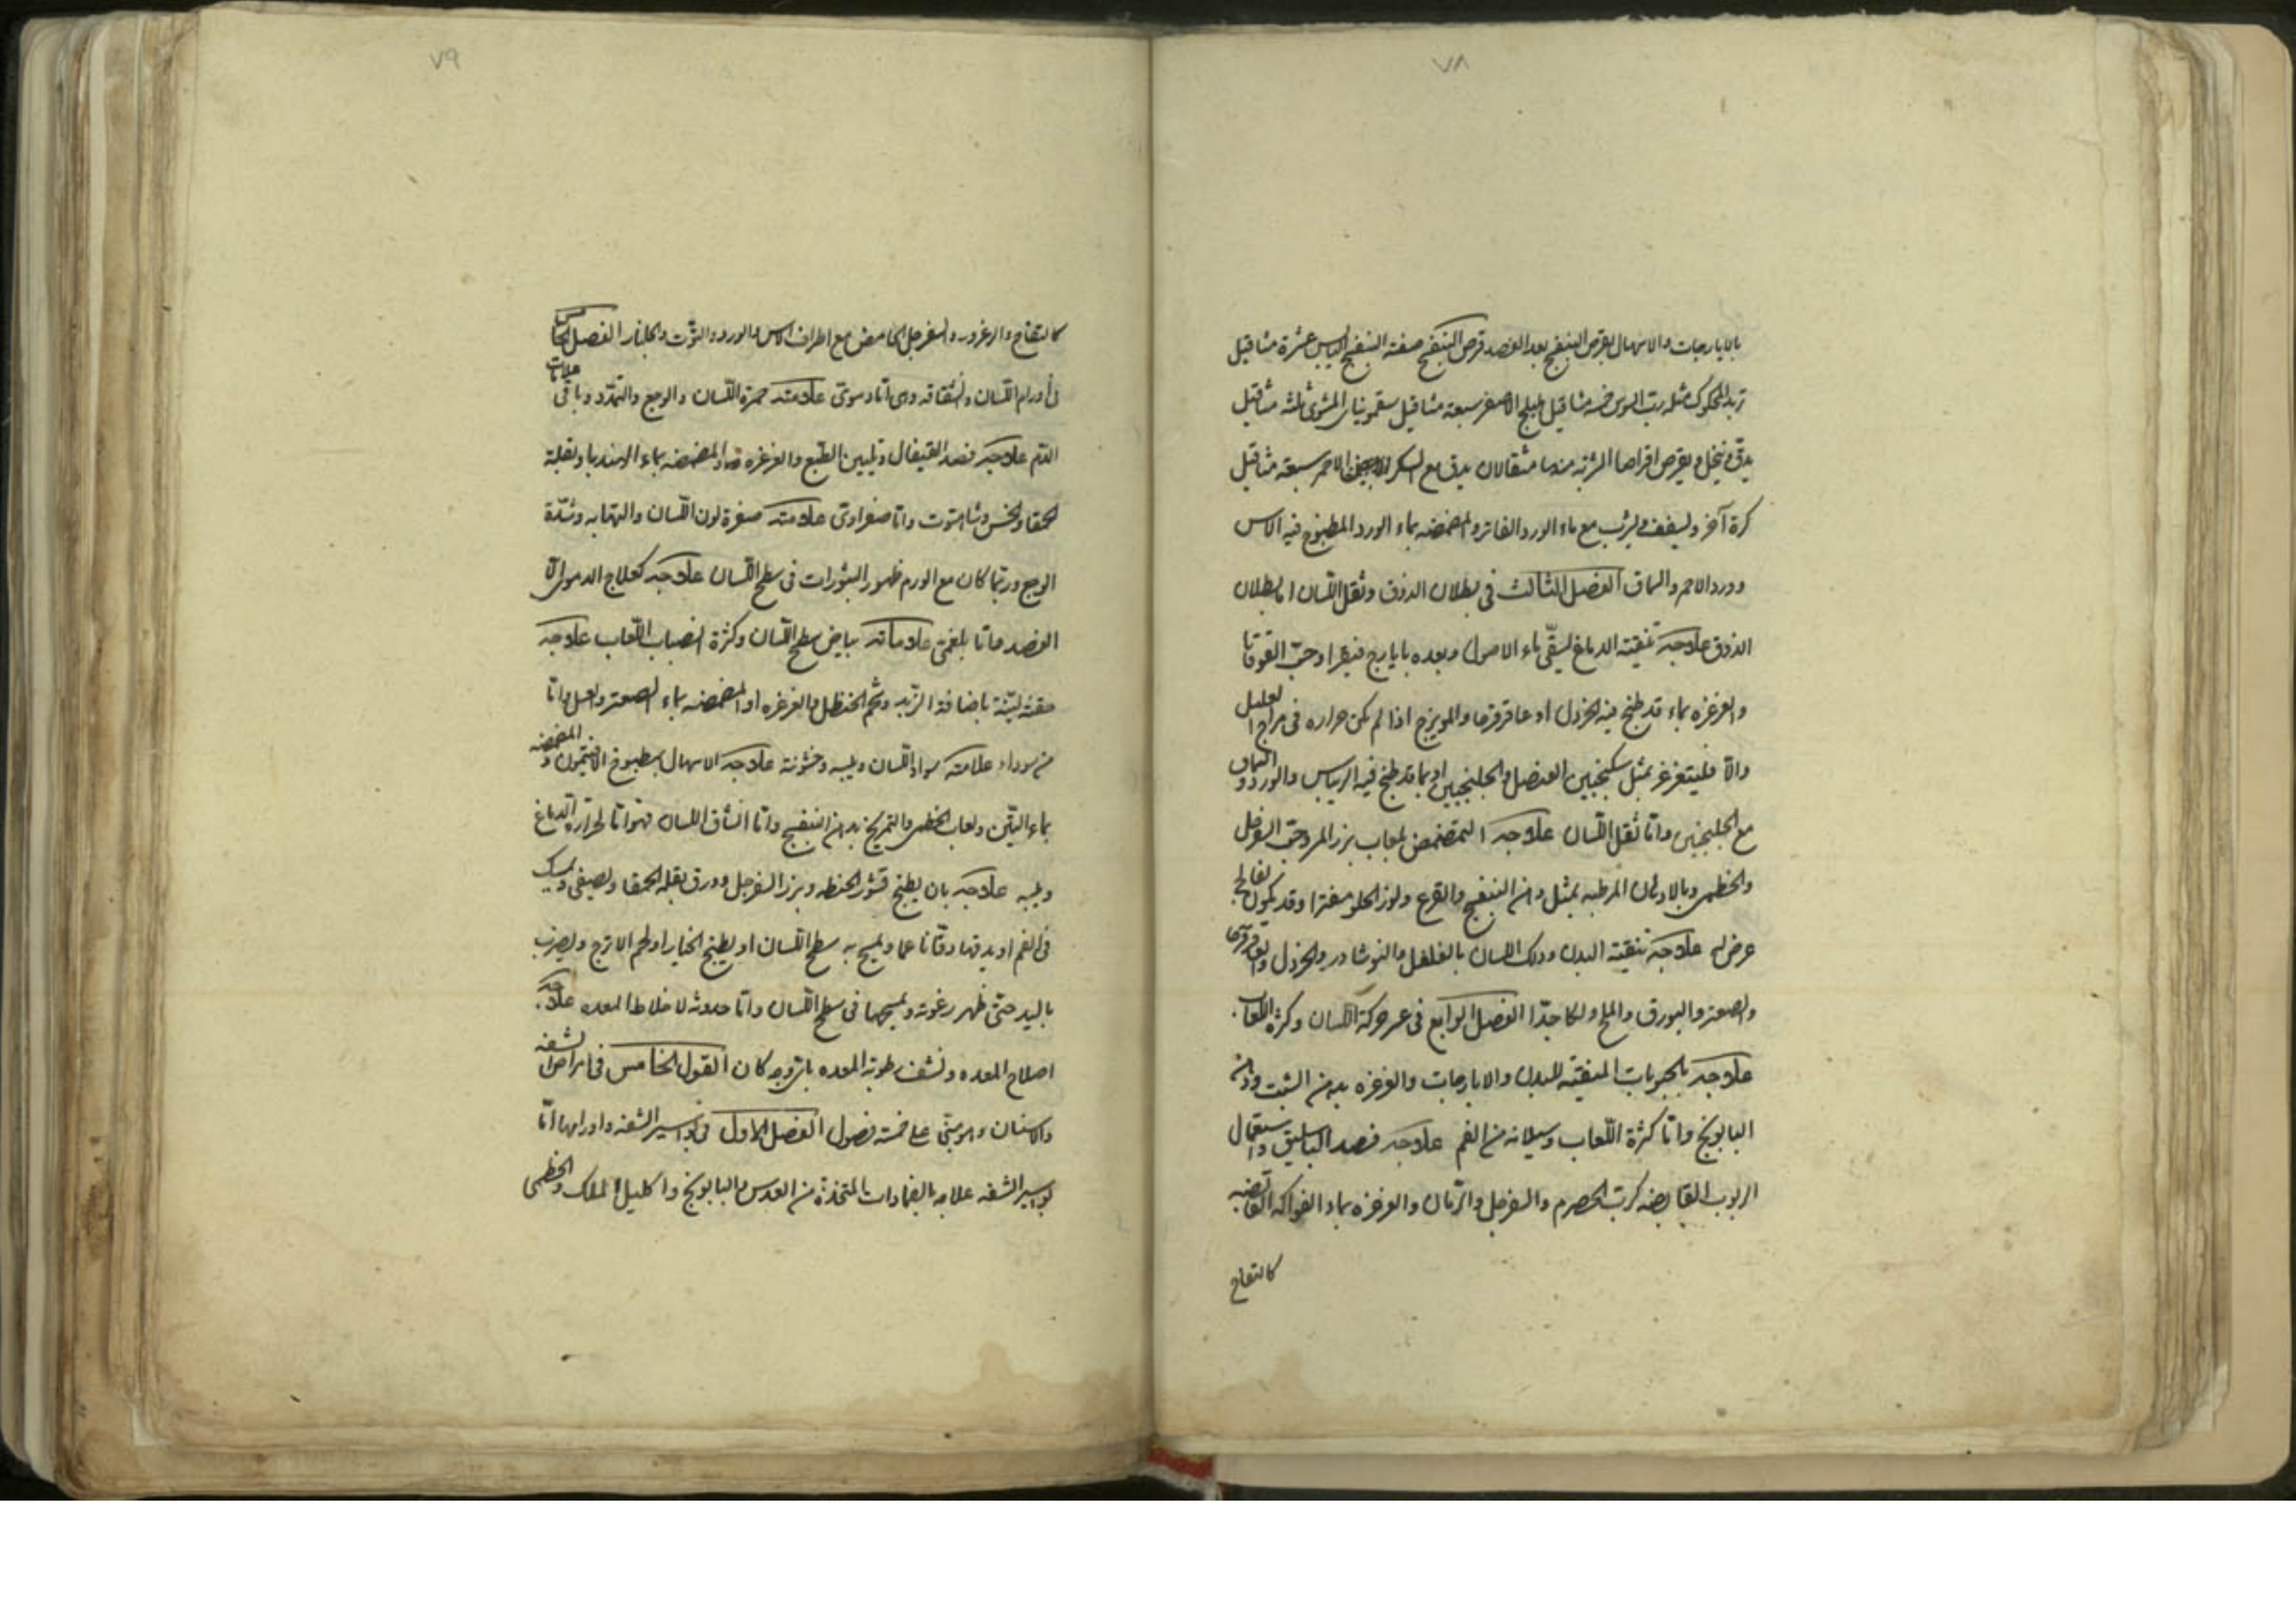 ٧٨
بالايارجات والاسهال بقرص البنفسج بعد الفصد قرص البنفسج صفته البنفسج اليابس عشرة مثاقيل
تربد المحكوك مثله رب السوس خمسة مثاقيل هليلج الاصفر سبعة مثاقيل سقمونيا المشوى ثلثه مثاقيل
يدق وينخل ويقرص اقراصا الشربه منها مثقالان يدق مع السكر الاحمر سبعة مثاقيل
كرة آخر ويسفف ويشرب مع ماء الورد الفاتر والمضمضه بماء الورد المطبوخ فيه الآس
وورد الاحمر والسماق الفصل الثالث فى بطلان الذوق وثقل اللسان اما بطلان
الذوق علاجه تنقيته الدماغ يسقى ماء الاصول وبعده بايارج فيقرا وحب القوقايا
والغرغره بماء قد طبخ فيه الخردل او عاقرقرحا والمويزج اذا لم يكن حراره فى مزاج العليل
والا فليتغرغر بمثل سكنجبين العنصل والجلنجبين او بما قد طبخ فيه الريباس والورد والسماق
مع الجلنجبين واما ثقل اللسان علاجه التمضمض بلعاب بزر المرو وحب السفرجل
والخطمى وبالادهان المرطبه بمثل دهن البنفسج والقرع ولوز الحلو مفترا وقد يكون لفالج
عرض له علاجه تنقيته البدن ودلك اللسان بالفلفل والنوشادر والخردل والعاقرقرحا
والصعتر والبورق والملح دلكا جدا الفصل الرابع فى عسر حركة اللسان وكثره اللعاب
علاجه بالحبوبات المنقيته للبدن والايارجات والغرغره بدهن الشبت ودهن
البابونج واما كثرة اللعاب وسيلانه من الفم علاجه فصد الباسليق واستعمال
الربوب القابضه كرب الحصرم والسفرجل والرمان والغرغره بماء الفواكه القابضه
كالتفاح
٧٩
كالتفاح والزعرور والسفرجل الحامض مع اطراف الآس والورد والتوت والجلنار الفصل الخامس
فى أورام اللسان وانشقاقه وهى اما دموى علامته حمرة اللسان والوجع والتمدد وباقى علامات
الدم علاجه فصد القيفال وتليين الطبع والغرغره والمضمضه بماء الهندبا وبقلة
الحمقا والخس وشاهتوت واما صفراوى علامته صفرة لون اللسان والتهابه وشدة
الوجع وربما كان مع الورم ظهور البثورات فى سطح اللسان علاجه كعلاج الدموى الا
الفصد واما بلغمى علاماته بياض سطح اللسان وكثرة انصباب اللعاب علاجه
حقنه لينة باضافة التربد وشحم الحنظل والغرغره او المضمضه بماء الصعتر والعسل واما
من سوداء علامته سواد اللسان ويبسه وخشونته علاجه الاسهال بمطبوخ الافتيمون والمضمضه
بماء التين ولعاب الخطمى والتمريخ بدهن البنفسج واما انشقاق اللسان فهو اما لحرارة الدماغ
ويبسه علاجه بان يطبخ قشور الحنطه وبزر السفرجل وورق بقله الحمقا ويصفى ويمسك
فى الفم او يدقها دقا ناعما ويمسح به سطح اللسان او يطبخ الخيار او لحم الاترج ويضرب
باليد حتى ظهر رغوته ويمسحها فى سطح اللسان واما حدوثه لاخلاط المعده علاجه
اصلاح المعده ونشف رطوبة المعده باى وجه كان القول الخامس فى امراض الشفه
والاسنان وهو مبنى على خمسة فصول الفصل الاول فى بواسير الشفه واورامها اما
بواسير الشفه علاجه بالضمادات المتخذة من العدس والبابونج واكليل الملك والخطمى